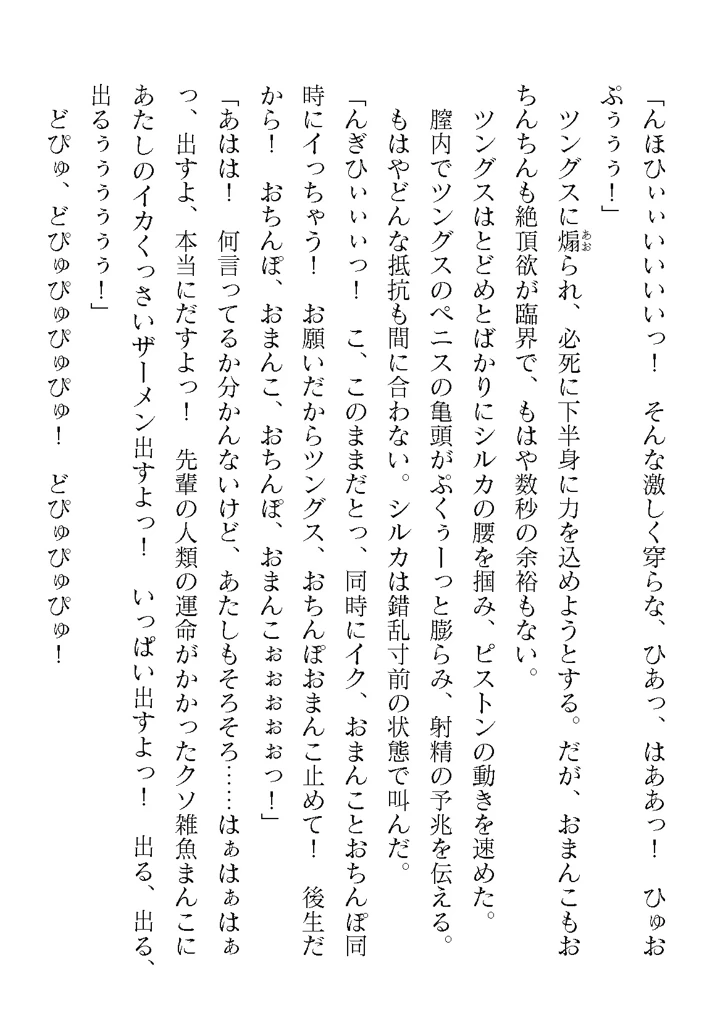 「んほひぃぃいいいいっ！　そんな激しく穿らな、ひあっ、はああっ！　ひゅお
ぷぅぅぅ！」
　ツングスに煽あおられ、必死に下半身に力を込めようとする。だが、おまんこもお
ちんちんも絶頂欲が臨界で、もはや数秒の余裕もない。
　ツングスはとどめとばかりにシルカの腰を掴み、ピストンの動きを速めた。
　膣内でツングスのペニスの亀頭がぷくぅーっと膨らみ、射精の予兆を伝える。
　もはやどんな抵抗も間に合わない。シルカは錯乱寸前の状態で叫んだ。
「んぎひぃぃぃっ！　こ、このままだとっ、同時にイク、おまんことおちんぽ同
時にイっちゃう！　お願いだからツングス、おちんぽおまんこ止めて！　後生だ
から！　おちんぽ、おまんこ、おちんぽ、おまんこぉぉぉぉぉっ！」
「あはは！　何言ってるか分かんないけど、あたしもそろそろ……はぁはぁはぁ
っ、出すよ、本当にだすよっ！　先輩の人類の運命がかかったクソ雑魚まんこに
あたしのイカくっさいザーメン出すよっ！　いっぱい出すよっ！　出る、出る、
出るぅぅぅぅぅぅ！」
　どぴゅ、どぴゅぴゅぴゅぴゅ！　どぴゅぴゅぴゅ！